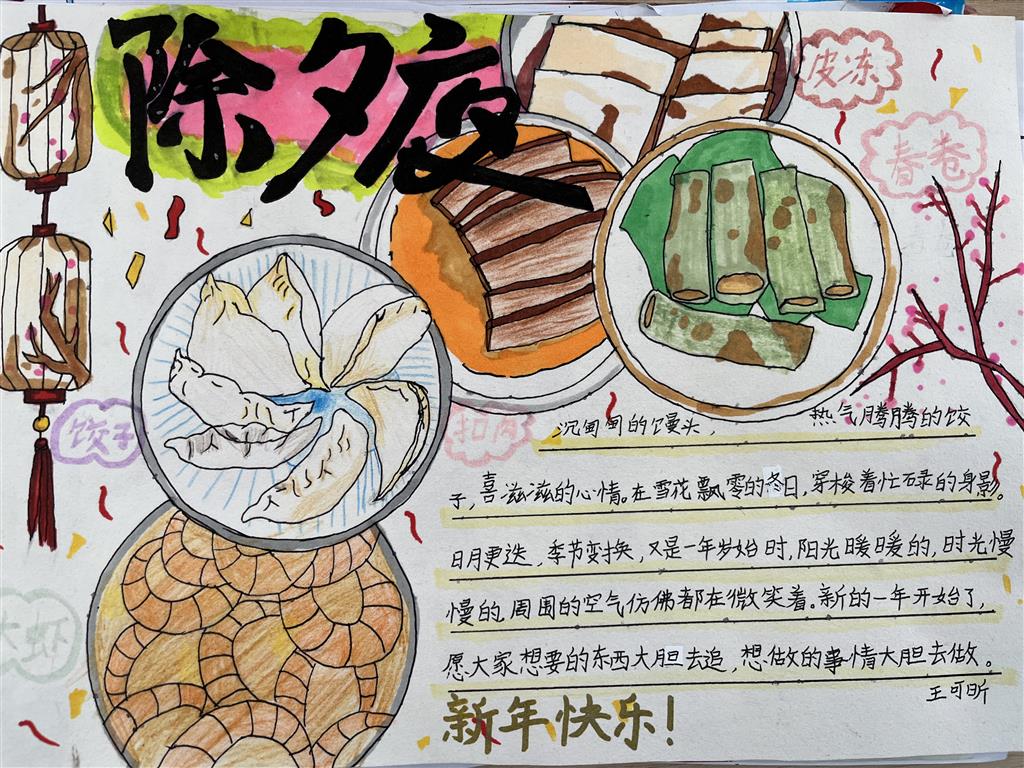 除夕夜
皮冻
春卷
饺子
扣肉
大虾
沉甸甸的馒头, 热气腾腾的饺
子,喜滋滋的心情。在雪花飘零的冬日,穿梭着忙碌的身影。
日月更迭,季节变换,又是一年岁始时,阳光暖暖的,时光慢
慢的,周围的空气仿佛都在微笑着。新的一年开始了,
愿大家想要的东西大胆去追,想做的事情大胆去做。
王可昕
新年快乐!